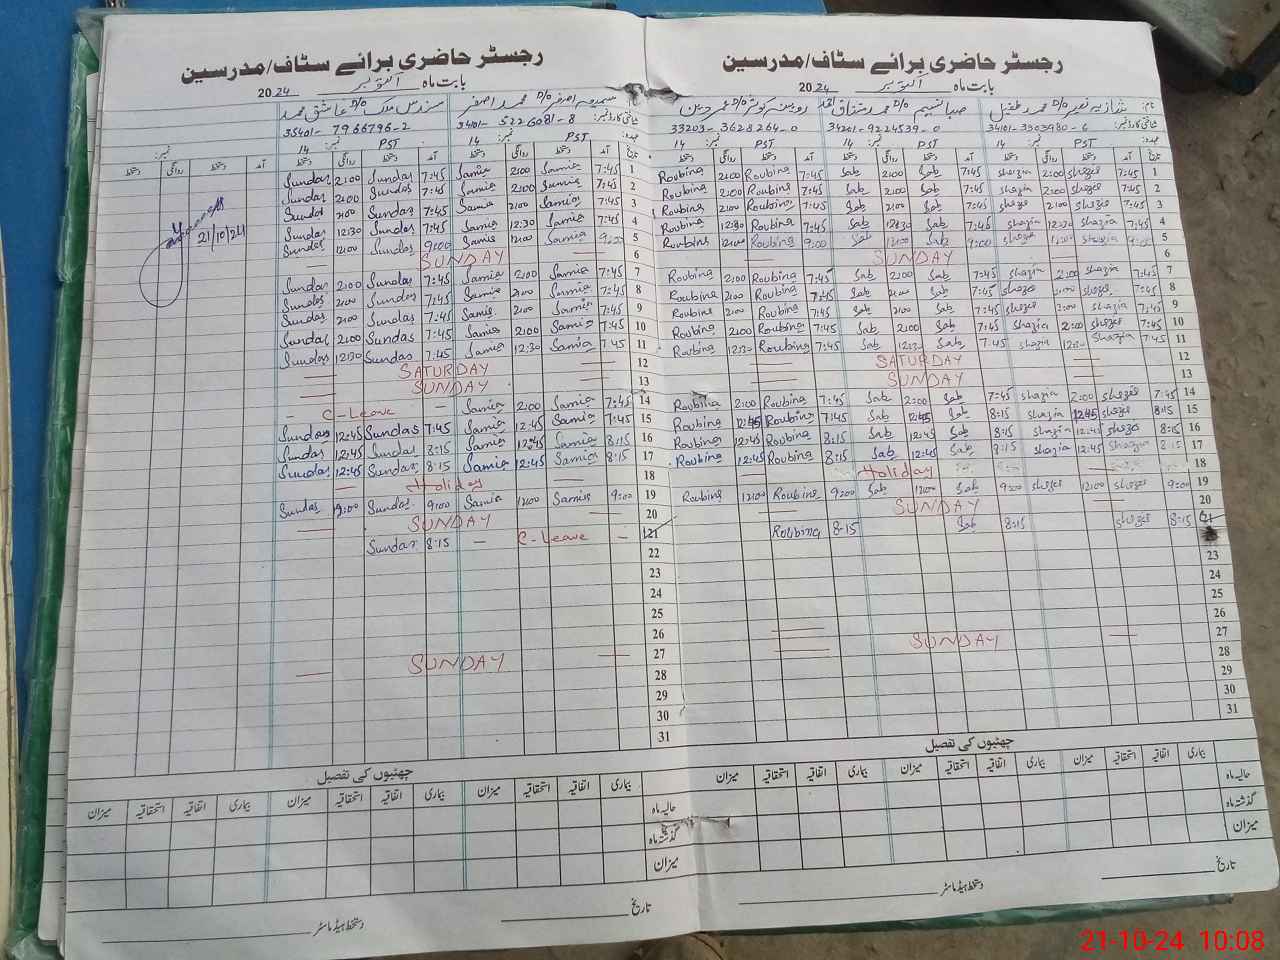 رجسٹر حاضری برائے سٹاف/مدرسین
بابت ماہ اکتوبر 2024
نام: شازیہ نور D/o محمد طفیل صبا نسیم D/o محمد مشتاق احمد روبینہ کوثر D/o
شناختی کارڈ نمبر: 34101-3303980-6 34201-9224539-0 33203-3628264-0
عہدہ: PST نمبر: 14 PST نمبر: 14 PST 14
تاریخ آمد دستخط روانگی دستخط آمد دستخط روانگی دستخط آمد دستخط روانگی دستخط
1 7:45 shazia 2:00 shazia 7:45 Sab 2:00 Sab 7:45 Roubina 2:00 Roubina
2 7:45 shazia 2:00 shazia 7:45 Sab 2:00 Sab 7:45 Roubina 2:00 Roubina
3 7:45 shazia 2:00 shazia 7:45 Sab 2:00 Sab 7:45 Roubina 2:00 Roubina
4 7:45 shazia 12:30 shazia 7:45 Sab 12:30 Sab 7:45 Roubina 12:30 Roubina
5 9:00 shazia 12:00 shazia 9:00 Sab 12:00 Sab 9:00 Roubina 12:00 Roubina
6 SUNDAY
7 7:45 shazia 2:00 shazia 7:45 Sab 2:00 Sab 7:45 Roubina 2:00 Roubina
8 7:45 shazia 2:00 shazia 7:45 Sab 2:00 Sab 7:45 Roubina 2:00 Roubina
9 7:45 shazia 2:00 shazia 7:45 Sab 2:00 Sab 7:45 Roubina 2:00 Roubina
10 7:45 shazia 2:00 shazia 7:45 Sab 2:00 Sab 7:45 Roubina 2:00 Roubina
11 7:45 shazia 12:30 shazia 7:45 Sab 12:30 Sab 7:45 Roubina 12:30 Roubina
12 SATURDAY
13 SUNDAY
14 7:45 shazia 2:00 shazia 7:45 Sab 2:00 Sab 7:45 Roubina 2:00 Roubina
15 8:15 shazia 12:45 shazia 8:15 Sab 12:45 Sab 7:45 Roubina 12:45 Roubina
16 8:15 shazia 12:45 shazia 8:15 Sab 12:45 Sab 8:15 Roubina 12:45 Roubina
17 8:15 shazia 12:45 shazia 8:15 Sab 12:45 Sab 8:15 Roubina 12:45 Roubina
18 Holiday
19 9:00 shazia 12:00 shazia 9:00 Sab 12:00 Sab 9:00 Roubina 12:00 Roubina
20 SUNDAY
21 8:15 shazia 8:15 Sab 8:15 Roubina
23
24
25
26
27 SUNDAY
28
29
30
31
چھٹیوں کی تفصیل
بیماری اتفاقیہ استحقاقیہ میزان بیماری اتفاقیہ استحقاقیہ میزان بیماری اتفاقیہ استحقاقیہ میزان
حالیہ ماہ
گذشتہ ماہ
میزان
تاریخ دستخط ہیڈ ماسٹر
رجسٹر حاضری برائے سٹاف/مدرسین
بابت ماہ اکتوبر 2024
سمعیہ اصغر D/o محمد اصغر سندس ملک D/o عاشق محمد
34101-5226081-8 35401-7966796-2
PST نمبر: 14 PST نمبر: 14 نمبر:
تاریخ آمد دستخط روانگی دستخط آمد دستخط روانگی دستخط آمد دستخط روانگی دستخط
1 7:45 Samia 2:00 Samia 7:45 Sundas 2:00 Sundas
2 7:45 Samia 2:00 Samia 7:45 Sundas 2:00 Sundas
3 7:45 Samia 2:00 Samia 7:45 Sundas 2:00 Sundas
4 7:45 Samia 12:30 Samia 7:45 Sundas 12:30 Sundas
21/10/24
5 9:00 Samia 12:00 Samia 9:00 Sundas 12:00 Sundas
6 SUNDAY
7 7:45 Samia 2:00 Samia 7:45 Sundas 2:00 Sundas
8 7:45 Samia 2:00 Samia 7:45 Sundas 2:00 Sundas
9 7:45 Samia 2:00 Samia 7:45 Sundas 2:00 Sundas
10 7:45 Samia 2:00 Samia 7:45 Sundas 2:00 Sundas
11 7:45 Samia 12:30 Samia 7:45 Sundas 12:30 Sundas
12 SATURDAY
13 SUNDAY
14 7:45 Samia 2:00 Samia C-Leave
15 7:45 Samia 12:45 Samia 7:45 Sundas 12:45 Sundas
16 8:15 Samia 12:45 Samia 8:15 Sundas 12:45 Sundas
17 8:15 Samia 12:45 Samia 8:15 Sundas 12:45 Sundas
18 Holiday
19 9:00 Samia 12:00 Samia 9:00 Sundas 9:00 Sundas
20 SUNDAY
21 C-Leave 8:15 Sundas
22
23
24
25
26
27 SUNDAY
28
29
30
31
چھٹیوں کی تفصیل
بیماری اتفاقیہ استحقاقیہ میزان بیماری اتفاقیہ استحقاقیہ میزان بیماری اتفاقیہ استحقاقیہ میزان
حالیہ ماہ
گذشتہ ماہ
میزان
تاریخ دستخط ہیڈ ماسٹر
21-10-24 10:08